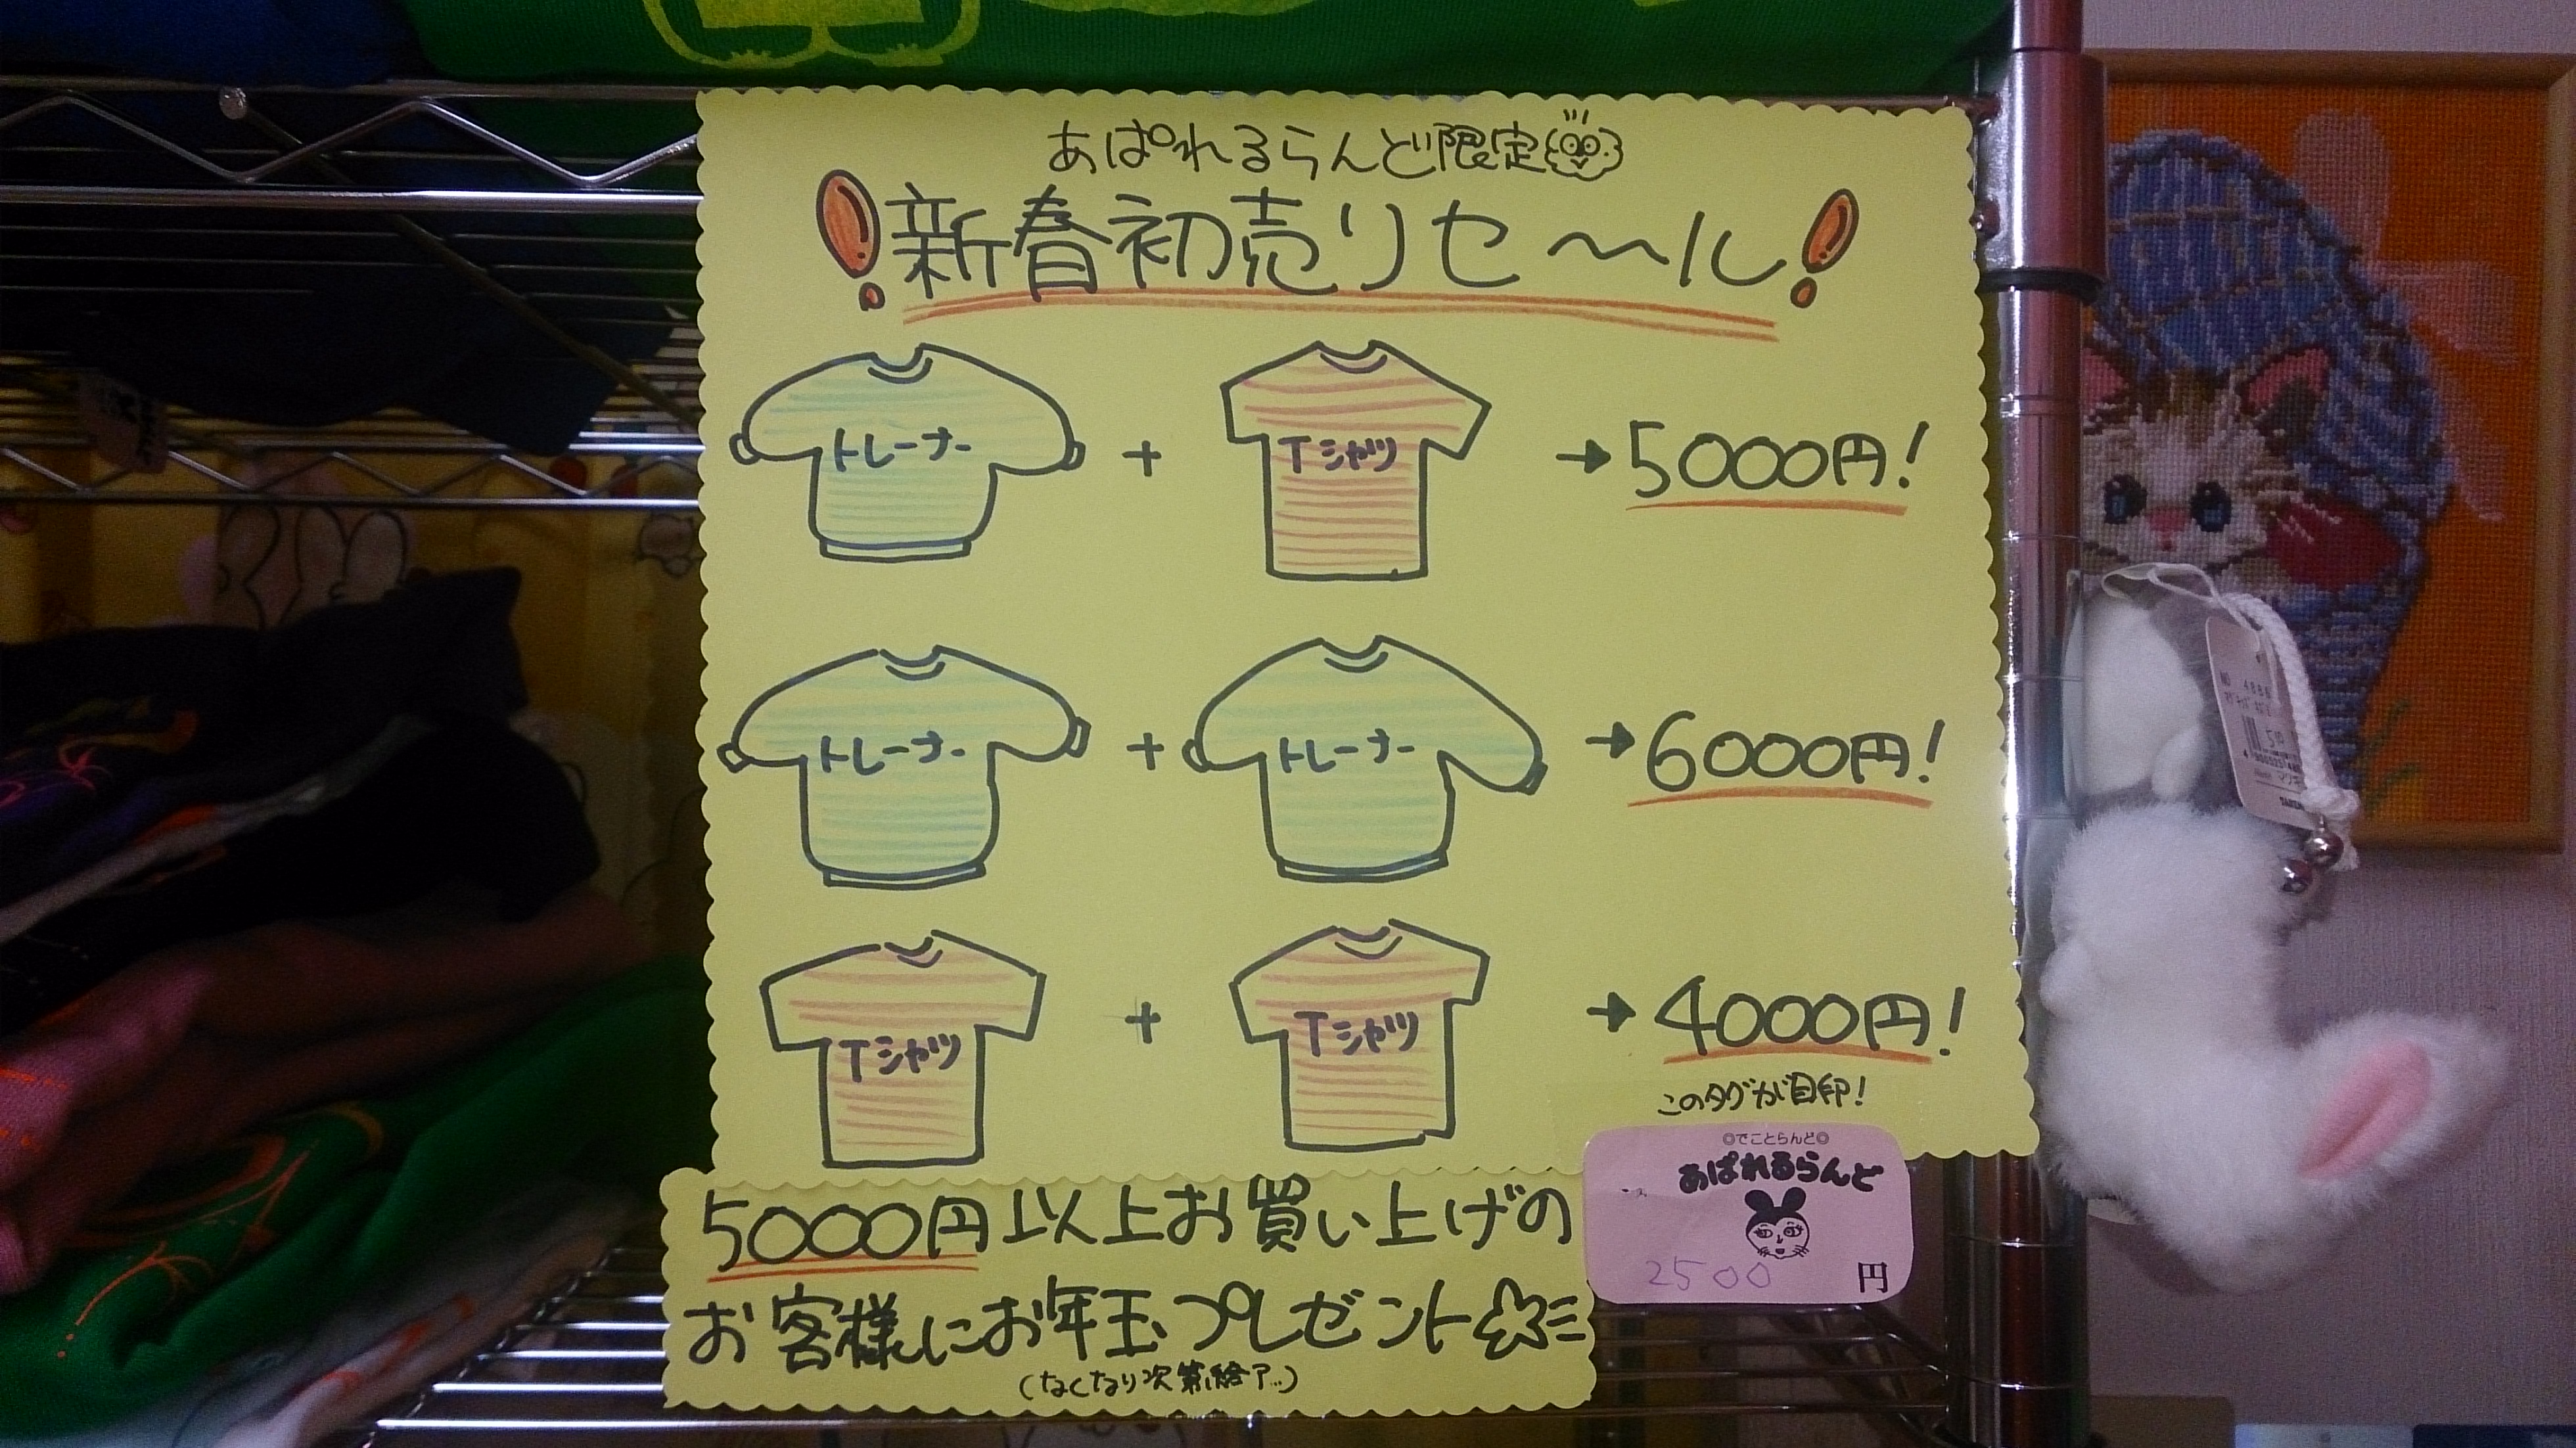 あぱれるらんど限定
!新春初売りセ〜ル!
トレーナー + Tシャツ →5000円!
トレーナー + トレーナー →6000円!
Tシャツ + Tシャツ →4000円!
このタグが目印!
◎でことらんど◎
あぱれるらんど
2500 円
5000円以上お買い上げの
お客様にお年玉プレゼント☆
(なくなり次第終了…)